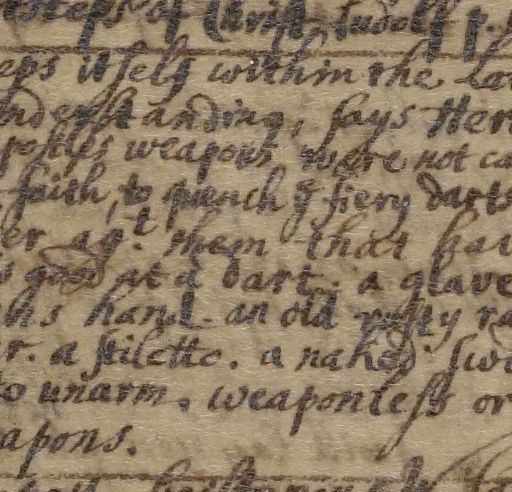 steps of Christ. Ludolf p.
eps itself within the
nderstanding, says Her
postles weapons were not ca
faith, to quench yͤ fiery darts
er agᵗ them that
good at a dart. a glave
hand. an old rusty ra
r. a stiletto. a naked swo
to unarm. weaponless or
apons.